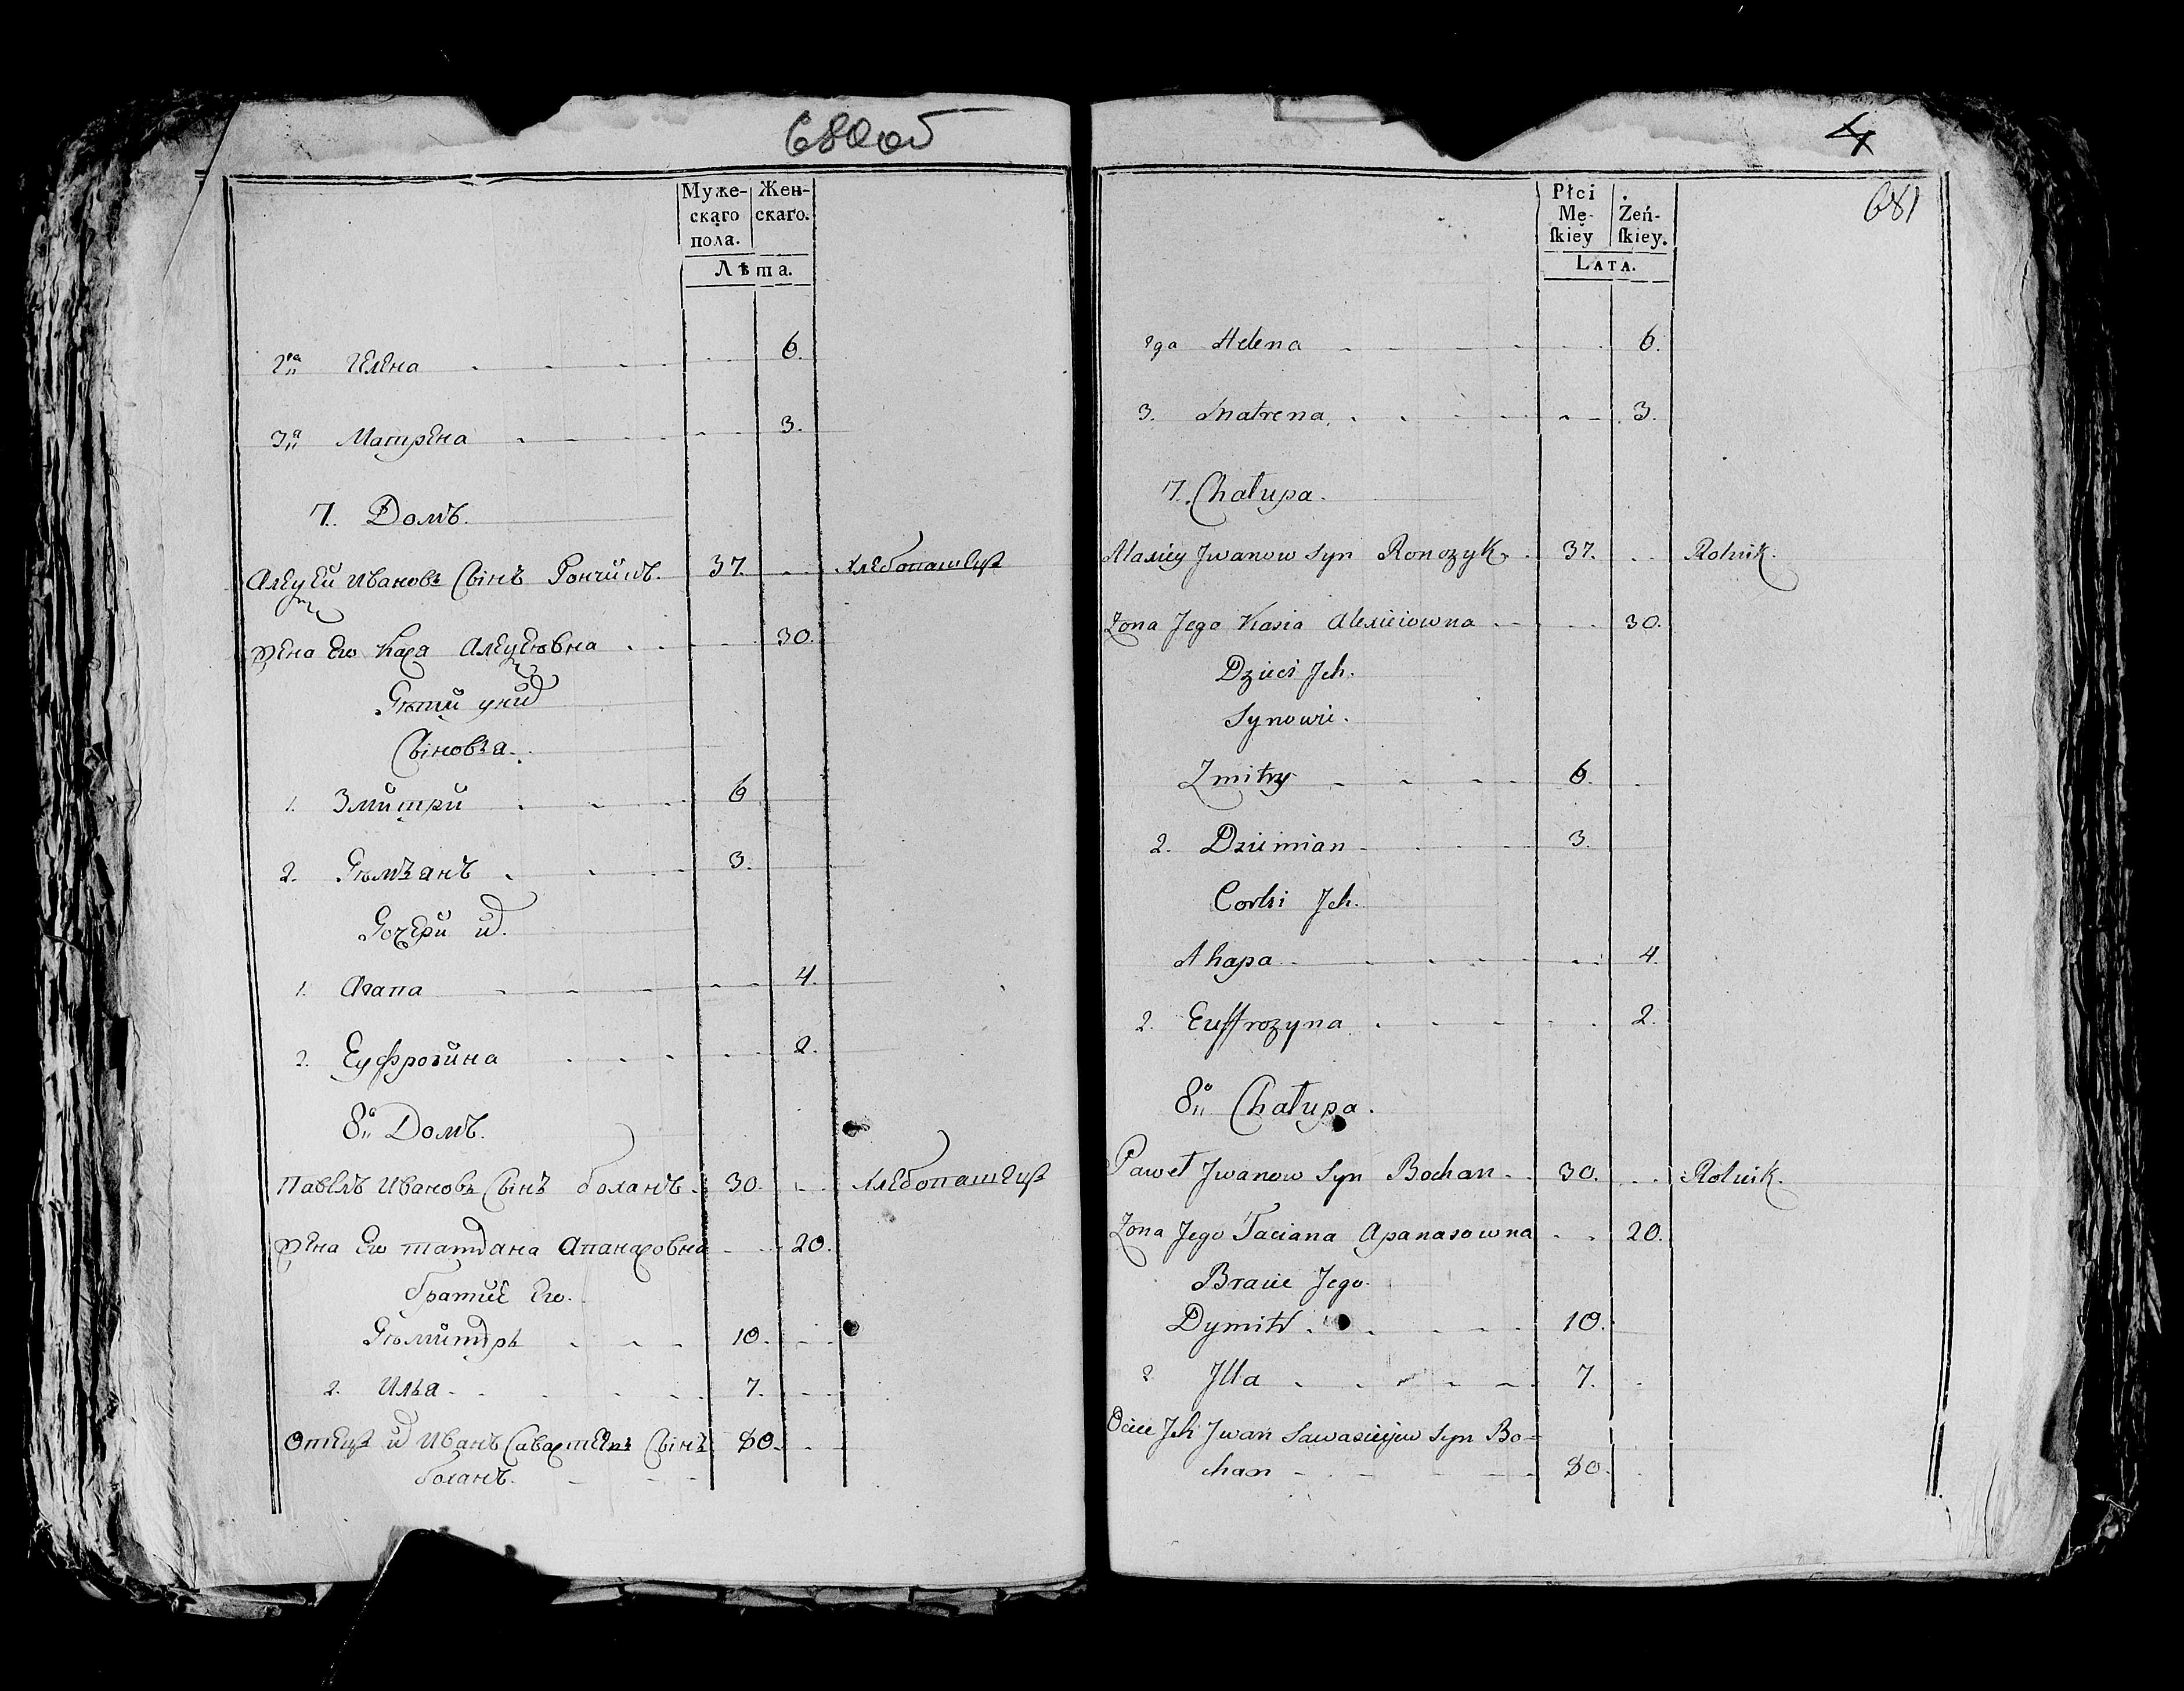 680об
Муже-
скаго
пола.
Жен-
скаго.
Лѣта.
2я Гелена 6.
3я Матрена 3.
7. Домъ.
Алеѯей Ивановъ Сынъ 37. хлебопашецъ
жена Его Кася Алеѯеювна 30.
Дѣти у них
Сыновья.
1. Змитри 6
2. Дѣмьянъ 3.
Дочери их.
1. Агапа 4.
2. Еуфрозина 2.
8о Домъ.
Павелъ Ивановъ Сынъ боханъ 30. хлебопашецъ
жена Его татдана Апанасовна 20.
братие Его.
Дѣмитръ 10.
2. Илья 7.
Отецъ их Иванъ Савастеевъ Сынъ 80.
боханъ.
4
681
Płci
Mę-
ſkiey
Żeń-
ſkiey.
LATA.
2ga Helena 6.
3. Matrena 3.
7. Chałupa.
Alaxiey Jwanow Syn Ronczyk 37. Rolnik.
Zona Jego Kasia Alexieiowna 30.
Dzieci Jch.
Synowie.
Zmitry 6.
2. Dziemian 3.
Corki Jch.
Ahapa 4.
2. Euffrozyna 2.
8o Chałupa.
Paweł Jwanow Syn Bochan 30. Rolnik.
Zona Jego Taciana Apanasowna 20.
Bracie Jego.
Dymitr 10.
2 Jlla 7.
Ociec Jch Jwan Sawasieyew Syn Bo=
chan 80.